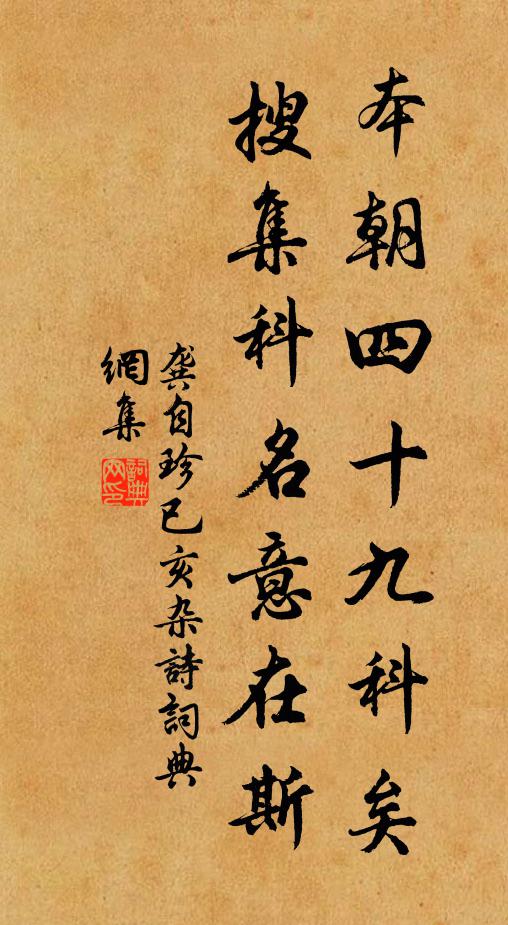 本朝四十九科矣
搜集科名意在斯
龔自珍已亥杂詩詞典
網集
詞典
网印